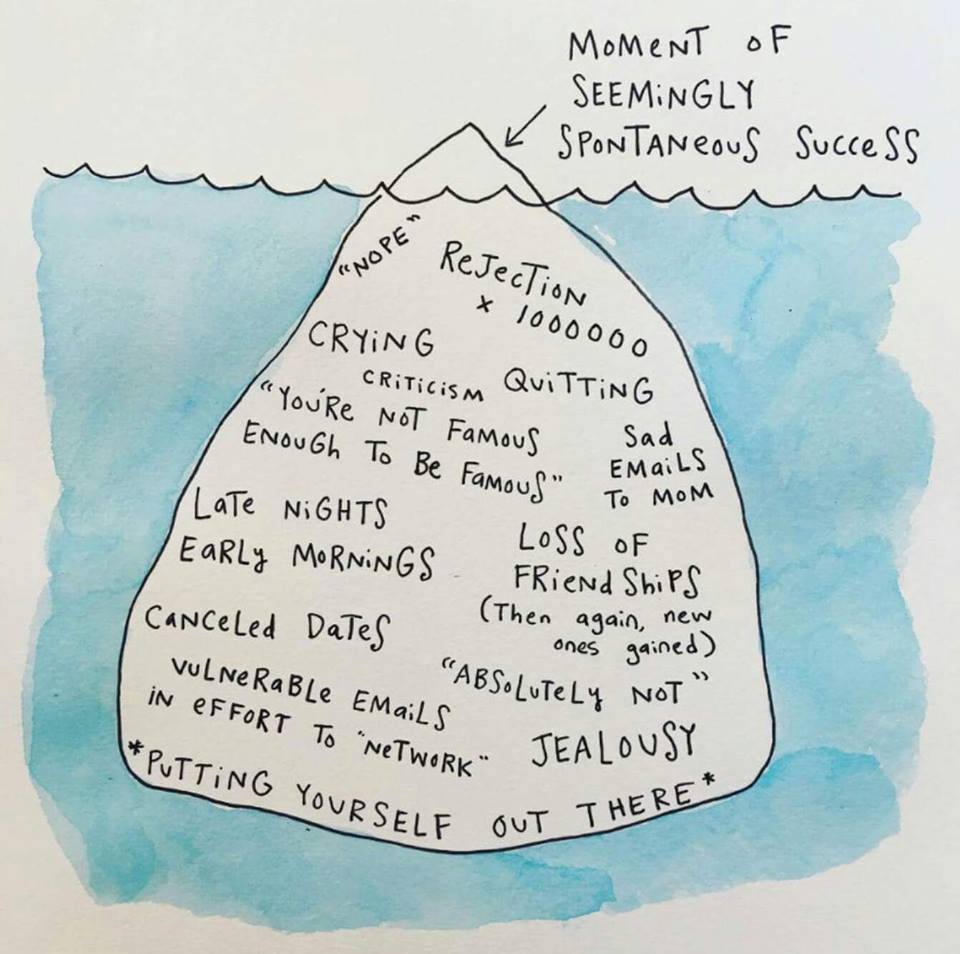 MOMENT OF
SEEMINGLY
SPONTANEOUS SUCCESS
"NOPE"
REJECTION
x 1000000
CRYING
CRITICISM
QUITTING
"YOU'RE NOT FAMOUS
ENOUGH TO BE FAMOUS"
SAD
EMAILS
TO MOM
LATE NIGHTS
EARLY MORNINGS
LOSS OF
FRIENDSHIPS
(Then again, new
ones gained)
CANCELED DATES
"ABSOLUTELY NOT"
VULNERABLE EMAILS
IN EFFORT TO "NETWORK"
JEALOUSY
*PUTTING YOURSELF OUT THERE*